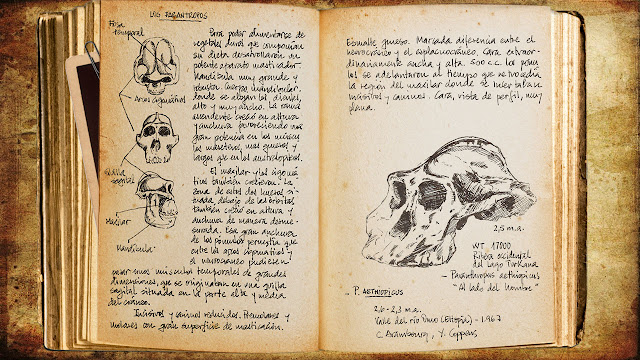 LOS PARANTROPOS
Fosa
temporal
Arcos cigomáticos
Cresta
sagital
Maxilar
Mandíbula
Para poder alimentarse de
vegetales duros que componían
su dieta desarrollaron un
potente aparato masticador.
Mandíbula muy grande y
robusta. Cuerpo mandibular,
donde se alojan los dientes,
alto y muy ancho. La rama
ascendente creció en altura
y anchura favoreciendo una
gran potencia en los músculos
maseteros, más gruesos y
largos que en los australopitecos.
El maxilar y los cigomá-
ticos también crecieron. La
zona de estos dos huesos si-
tuada debajo de las órbitas
también creció en altura y
anchura de manera desme-
surada. Esa gran anchura
de los pómulos permitía que
entre los arcos cigomáticos y
el neurocráneo pudiesen
pasar unos músculos temporales de grandes
dimensiones, que se originaban en una cresta
sagital situada en la parte alta y media
del cráneo.
Incisivos y caninos reducidos. Premolares y
molares con gran superficie de masticación.
Esmalte grueso. Marcada diferencia entre el
neurocráneo y el esplacnocráneo. Cara extraor-
dinariamente ancha y alta. 500 c.c. Los pómu-
los se adelantaron al tiempo que se retrocedía
la región del maxilar donde se insertaban
incisivos y caninos. Cara, vista de perfil, muy
plana.
2,5 m.a.
WT 17000
Ribera occidental
del lago Turkana
- Paranthropus aethiopicus
"Al lado del hombre"
. P. AETHIOPICUS
2,6 - 2,3 m.a.
Valle del río Omo (Etiopía) - 1967
C. Arambourg, Y. Coppens